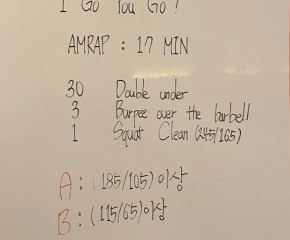 I Go You Go !
AMRAP : 17 MIN
30 Double under
3 Burpee over the barbell
1 Squat Clean (245/165)
A : (185/105) 이상
B : (115/65) 이상